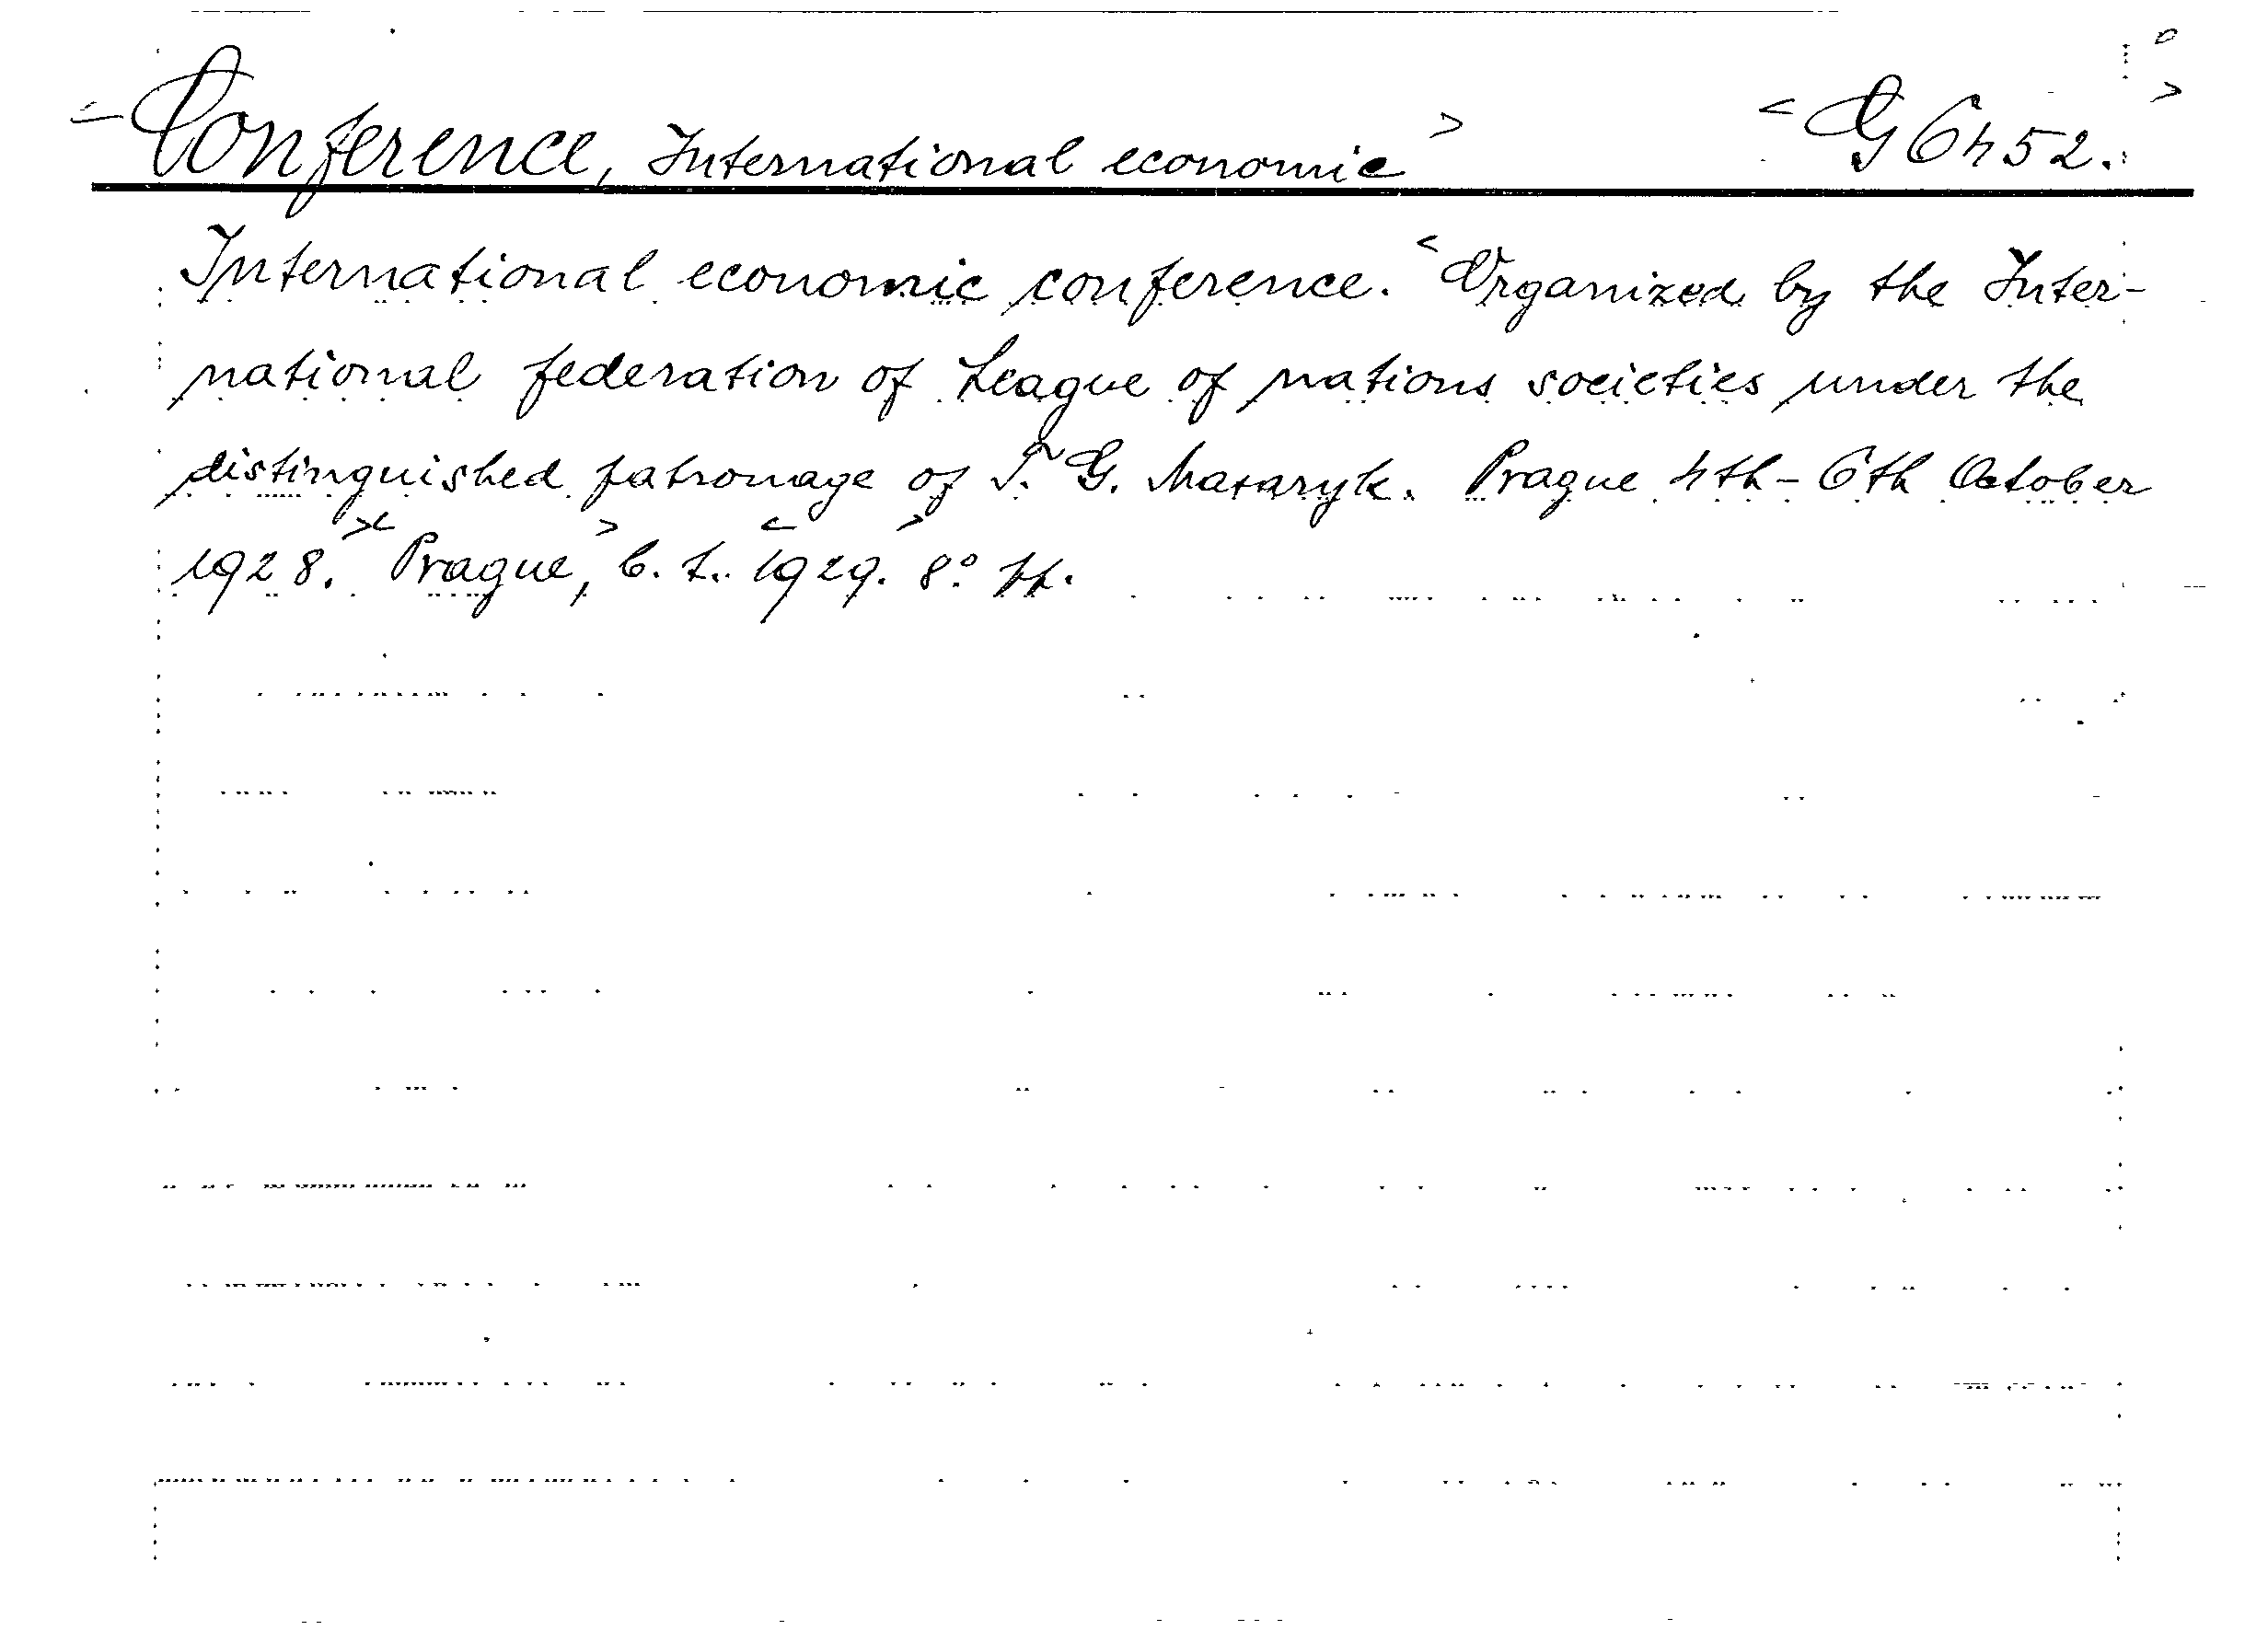 Conference, International economic G 6452.
International economic conference. Organized by the Inter-
national federation of League of nations societies under the
distinguished patronage of T. G. Masaryk. Prague 4th - 6th October
1928. Prague, 1929. 8°